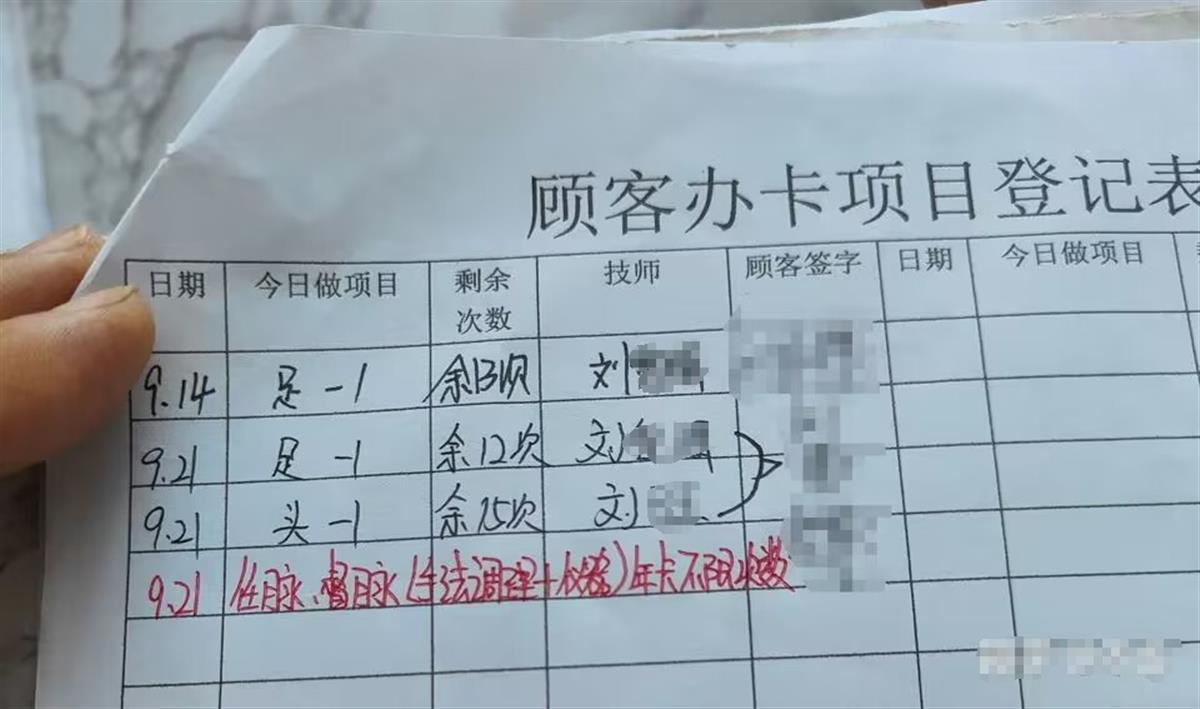 顾客办卡项目登记表
日期 今日做项目 剩余次数 技师 顾客签字 日期 今日做项目
9.14 足-1 余13次 刘
9.21 足-1 余12次 刘
9.21 头-1 余15次 刘
9.21 任脉、督脉(手法调理+仪器)年卡不限次数